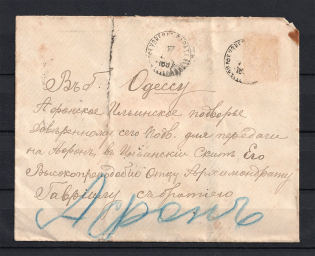 Въ г. Одессу
Афонское Ильинское подворье
Довѣренному сего Подв. для передачи
на Афонъ, въ Ильинскій Скитъ Его
Высокопреподобію Отцу Архимандриту
Гавріилу съ братіею
Афонъ